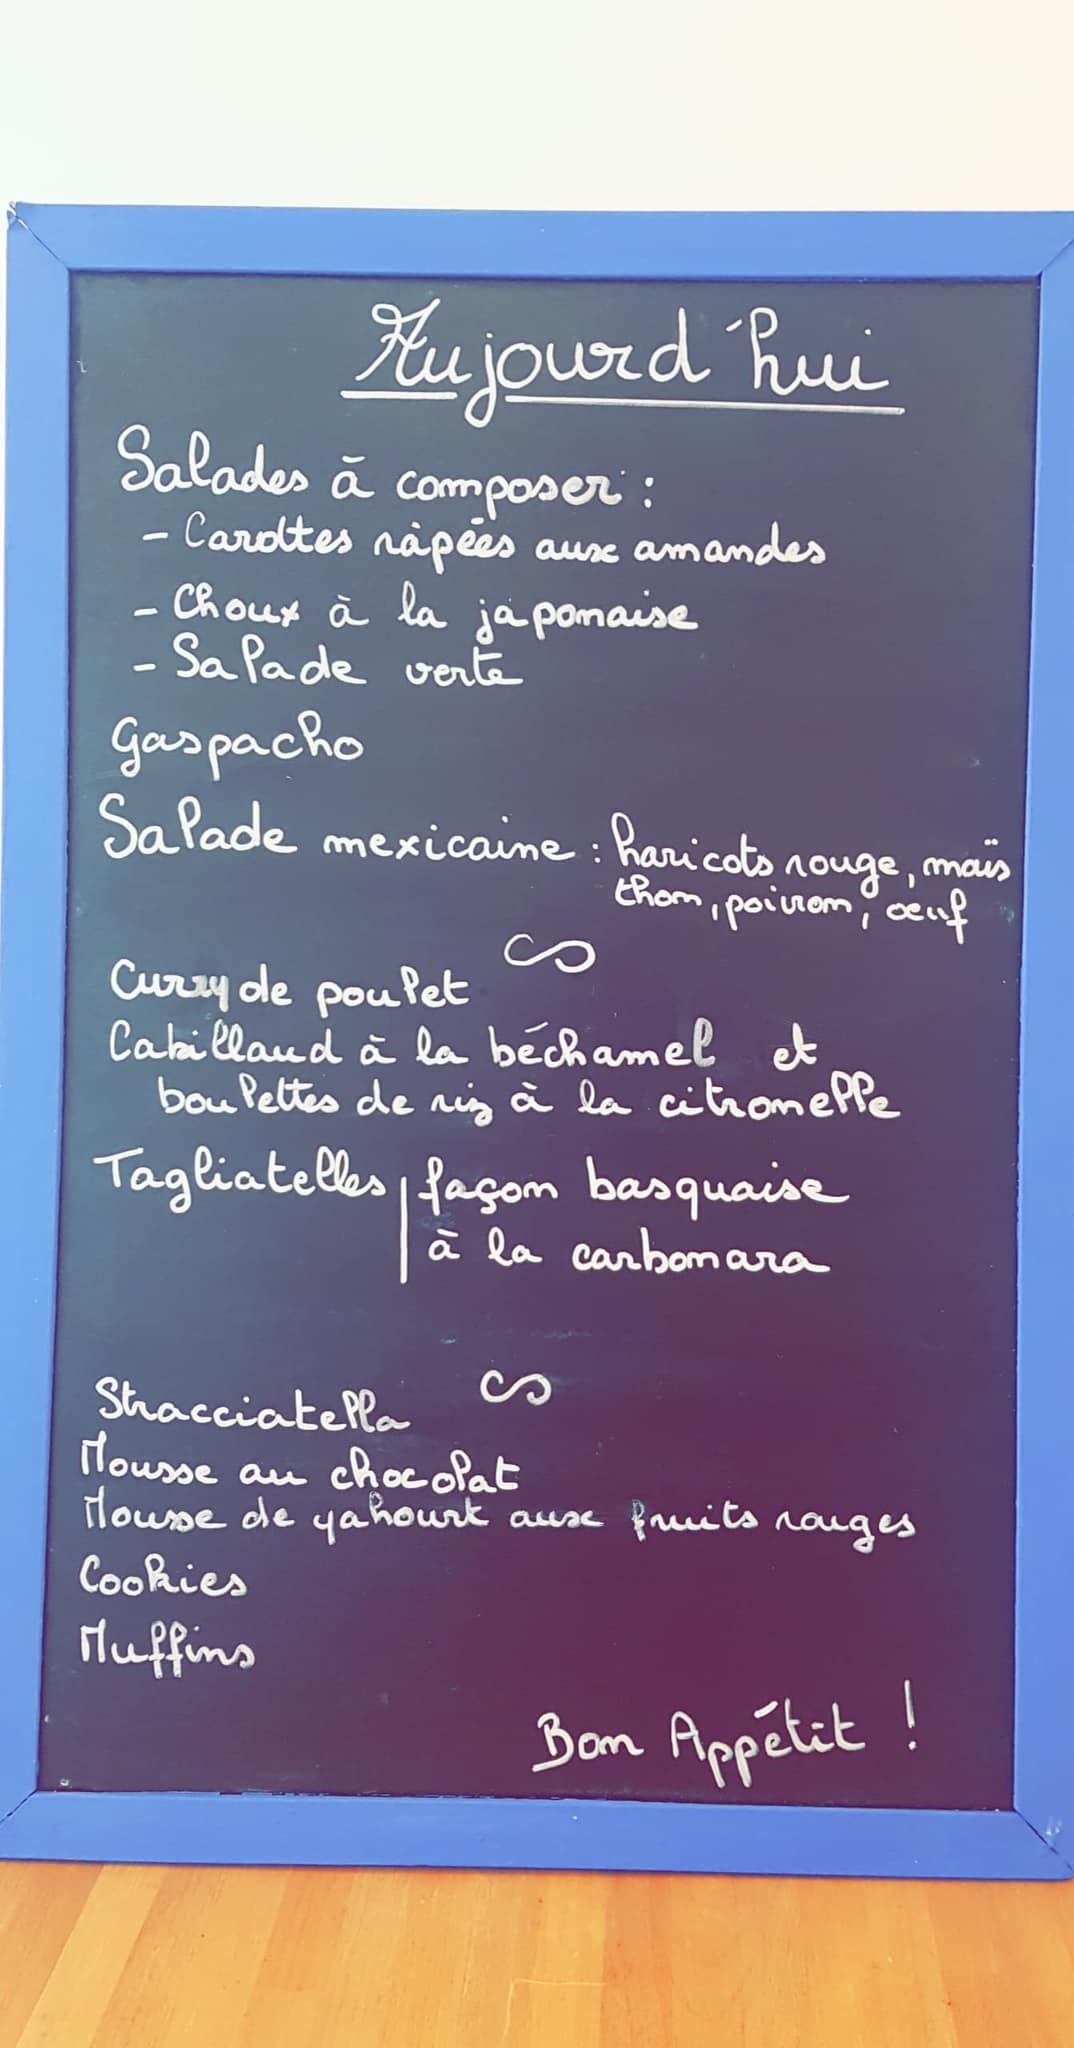 Aujourd'hui
Salades à composer :
- Carottes râpées aux amandes
- Choux à la japonaise
- Salade verte
Gaspacho
Salade mexicaine : haricots rouge, maïs
thon, poivron, œuf
Curry de poulet
Cabillaud à la béchamel et
boulettes de riz à la citronelle
Tagliatelles | façon basquaise
à la carbonara
Stracciatella
Mousse au chocolat
Mousse de yahourt aux fruits rouges
Cookies
Muffins
Bon Appétit !